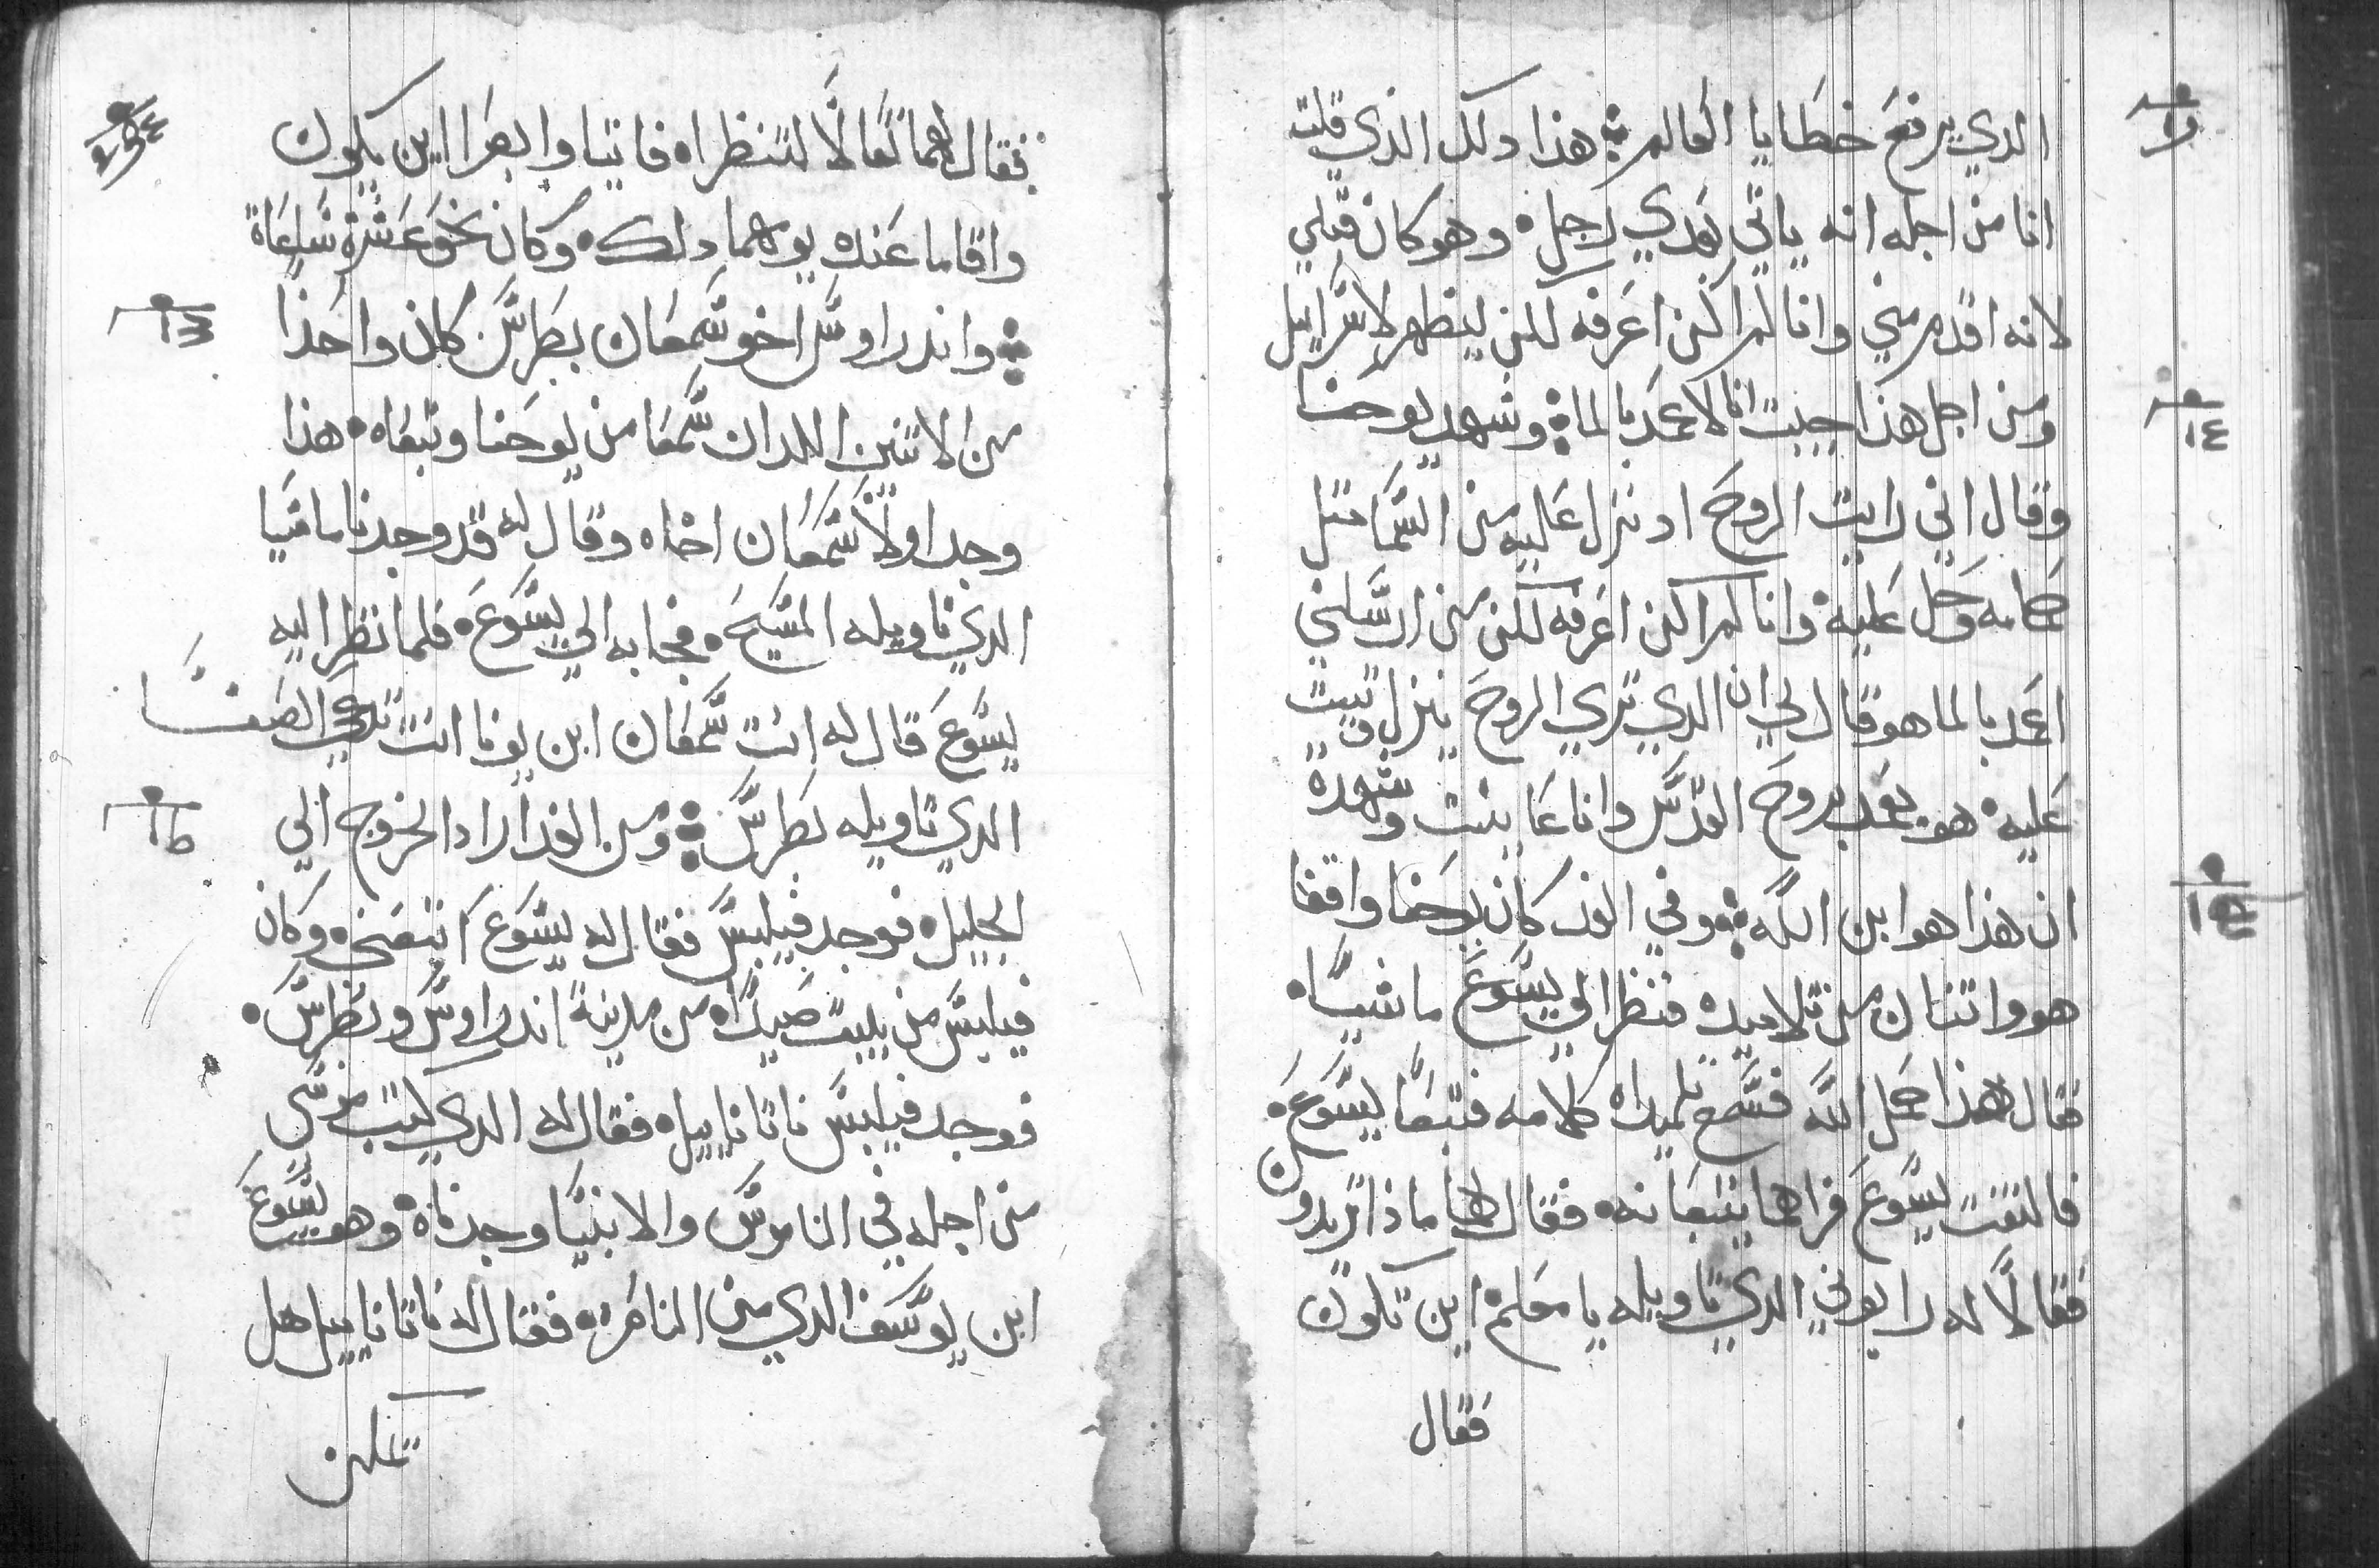 الدي يرفع خطايا العالم هذا دلك الذي قلت
انا من اجله انه ياتي بعدي رجل وهو كان قبلي
لانه اقدم مني وانا لم اكن اعرفه لكن ليظهر لاسراييل
ومن اجل هذا جيت انا لاعمد بالما وشهد يوحنا
وقال اني رايت الروح اد نزل عليه من السما متل
حمامه وحل عليه وانا لم اكن اعرفه لكن من ارسلني
اعمد بالما هو قال لي ان الدي تري الروح ينزل وتيبت
عليه هو يعمد بروح القدس وانا عاينت وشهدة
ان هذا هو ابن الله وفي الغد كان يوحنا واقفا
هو واتنان من تلاميده فنظر الي يسوع ماشيا
فقال هذا حمل الله فسمع تلميداه كلامه فتبعا يسوع
فالتفت يسوع فراهما يتبعانه فقال لهما ماذا تريدون
فقالا له رابوني الدي تاويله يا معلم اين تكون
فقال
١٤
١٥
فقال لهما تعالا لتنظراه فاتيا وابصرا اين يكون
واقاما عنده يومهما دلك وكان نحو عشرة ساعاة
واندراوس اخو سمعان بطرس كان واحدا
من الاتنين اللدان سمعا من يوحنا وتبعاه هذا
وجد اولا سمعان اخاه وقال له قد وجدنا ماسيا
الدي تاويله المسيح فجا به الي يسوع فلما نظر اليه
يسوع قال له انت سمعان ابن يونا انت تدعي الصفا
الدي تاويله بطرس ومن الغد اراد الخروج الي
الجليل فوجد فيلبس فقال له يسوع اتبعني وكان
فيلبس من بيت صيدا من مدينة اندراوس وبطرس
فوجد فيلبس ناتاناييل فقال له الدي كتب موسي
من اجله في الناموس والانبيا وجدناه وهو يسوع
ابن يوسف الدي من الناصره فقال له ناتاناييل هل